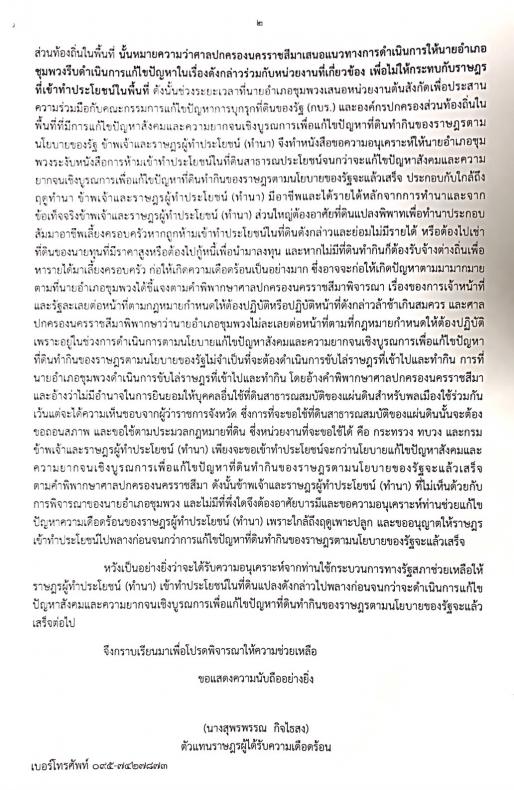 ๒
ส่วนท้องถิ่นในพื้นที่ นั้นหมายความว่าศาลปกครองนครราชสีมาเสนอแนวทางการดำเนินการให้นายอำเภอ
ชุมพวงรีบดำเนินการแก้ไขปัญหาในเรื่องดังกล่าวร่วมกับหน่วยงานที่เกี่ยวข้อง เพื่อไม่ให้กระทบกับราษฎร
ที่เข้าทำประโยชน์ในพื้นที่ ดังนั้นช่วงระยะเวลาที่นายอำเภอชุมพวงเสนอหน่วยงานต้นสังกัดเพื่อประสาน
ความร่วมมือกับคณะกรรมการแก้ไขปัญหาการบุกรุกที่ดินของรัฐ (กบร.) และองค์กรปกครองส่วนท้องถิ่นใน
พื้นที่ที่มีการแก้ไขปัญหาสังคมและความยากจนเชิงบูรณการเพื่อแก้ไขปัญหาที่ดินทำกินของราษฎรตาม
นโยบายของรัฐ ข้าพเจ้าและราษฎรผู้ทำประโยชน์ (ทำนา) จึงทำหนังสือขอความอนุเคราะห์ให้นายอำเภอชุม
พวงระงับหนังสือการห้ามเข้าทำประโยชน์ในที่ดินสาธารณประโยชน์จนกว่าจะแก้ไขปัญหาสังคมและความ
ยากจนเชิงบูรณการเพื่อแก้ไขปัญหาที่ดินทำกินของราษฎรตามนโยบายของรัฐจะแล้วเสร็จ ประกอบกับใกล้ถึง
ฤดูทำนา ข้าพเจ้าและราษฎรผู้ทำประโยชน์ (ทำนา) มีอาชีพและได้รายได้หลักจากการทำนาและจาก
ข้อเท็จจริงข้าพเจ้าและราษฎรผู้ทำประโยชน์ (ทำนา) ส่วนใหญ่ต้องอาศัยที่ดินแปลงพิพาทเพื่อทำนาประกอบ
สัมมาอาชีพเลี้ยงครอบครัวหากถูกห้ามเข้าทำประโยชน์ในที่ดินดังกล่าวและย่อมไม่มีรายได้ หรือต้องไปเช่า
ที่ดินของนายทุนที่มีราคาสูงหรือต้องไปกู้หนี้เพื่อนำมาลงทุน และหากไม่มีที่ดินทำกินก็ต้องรับจ้างต่างถิ่นเพื่อ
หารายได้มาเลี้ยงครอบครัว ก่อให้เกิดความเดือดร้อนเป็นอย่างมาก ซึ่งอาจจะก่อให้เกิดปัญหาตามมามากมาย
ตามที่นายอำเภอชุมพวงได้ชี้แจงตามคำพิพากษาศาลปกครองนครราชสีมาพิจารณา เรื่องของการเจ้าหน้าที่
และรัฐละเลยต่อหน้าที่ตามกฎหมายกำหนดให้ต้องปฏิบัติหรือปฏิบัติหน้าที่ดังกล่าวล่าช้าเกินสมควร และศาล
ปกครองนครราชสีมาพิพากษาว่านายอำเภอชุมพวงไม่ละเลยต่อหน้าที่ตามที่กฎหมายกำหนดให้ต้องปฏิบัติ
เพราะอยู่ในช่วงการดำเนินการตามนโยบายแก้ไขปัญหาสังคมและความยากจนเชิงบูรณการเพื่อแก้ไขปัญหา
ที่ดินทำกินของราษฎรตามนโยบายของรัฐไม่จำเป็นที่จะต้องดำเนินการขับไล่ราษฎรที่เข้าไปและทำกิน การที่
นายอำเภอชุมพวงดำเนินการขับไล่ราษฎรที่เข้าไปและทำกิน โดยอ้างคำพิพากษาศาลปกครองนครราชสีมา
และอ้างว่าไม่มีอำนาจในการยินยอมให้บุคคลอื่นใช้ที่ดินสาธารณสมบัติของแผ่นดินสำหรับพลเมืองใช้ร่วมกัน
เว้นแต่จะได้ความเห็นชอบจากผู้ว่าราชการจังหวัด ซึ่งการที่จะขอใช้ที่ดินสาธารณสมบัติของแผ่นดินนั้นจะต้อง
ขอถอนสภาพ และขอใช้ตามประมวลกฎหมายที่ดิน ซึ่งหน่วยงานที่จะขอใช้ได้ คือ กระทรวง ทบวง และกรม
ข้าพเจ้าและราษฎรผู้ทำประโยชน์ (ทำนา) เพียงจะขอเข้าทำประโยชน์จะกว่านโยบายแก้ไขปัญหาสังคมและ
ความยากจนเชิงบูรณการเพื่อแก้ไขปัญหาที่ดินทำกินของราษฎรตามนโยบายของรัฐจะแล้วเสร็จ
ตามคำพิพากษาศาลปกครองนครราชสีมา ดังนั้นข้าพเจ้าและราษฎรผู้ทำประโยชน์ (ทำนา) ที่ไม่เห็นด้วยกับ
การพิจารณาของนายอำเภอชุมพวง และไม่มีที่พึ่งใดจึงต้องอาศัยบารมีและขอความอนุเคราะห์ท่านช่วยแก้ไข
ปัญหาความเดือดร้อนของราษฎรผู้ทำประโยชน์ (ทำนา) เพราะใกล้ถึงฤดูเพาะปลูก และขออนุญาตให้ราษฎร
เข้าทำประโยชน์ไปพลางก่อนจนกว่าการแก้ไขปัญหาที่ดินทำกินของราษฎรตามนโยบายของรัฐจะแล้วเสร็จ
หวังเป็นอย่างยิ่งว่าจะได้รับความอนุเคราะห์จากท่านใช้กระบวนการทางรัฐสภาช่วยเหลือให้
ราษฎรผู้ทำประโยชน์ (ทำนา) เข้าทำประโยชน์ในที่ดินแปลงดังกล่าวไปพลางก่อนจนกว่าจะดำเนินการแก้ไข
ปัญหาสังคมและความยากจนเชิงบูรณการเพื่อแก้ไขปัญหาที่ดินทำกินของราษฎรตามนโยบายของรัฐจะแล้ว
เสร็จต่อไป
จึงกราบเรียนมาเพื่อโปรดพิจารณาให้ความช่วยเหลือ
ขอแสดงความนับถืออย่างยิ่ง
(นางสุพรพรรณ กิจไธสง)
ตัวแทนราษฎรผู้ได้รับความเดือดร้อน
เบอร์โทรศัพท์ ๐๙๕-๗๔๒๗๘๗๓